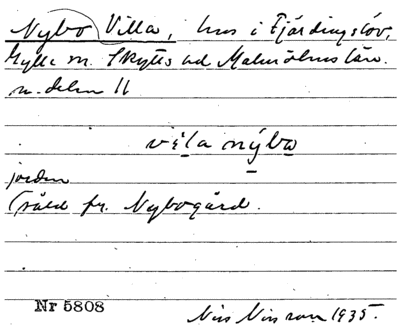 Nybo Villa, hus i Fjärdingslöv,
Gylle sn. Skytts hd Malmöhus län.
m. delen 11
vila nýbo
jorden
såld fr. Nybogård.
Nr 5808
Nils Nilsson 1935.